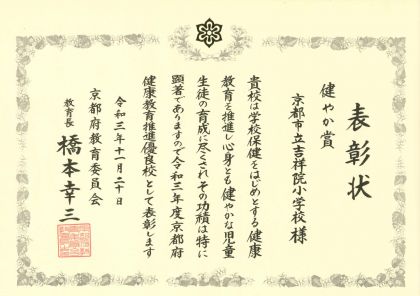 表彰状
健やか賞
京都市立吉祥院小学校 様
貴校は学校保健をはじめとする健康
教育を推進し心身とも健やかな児童
生徒の育成に尽くされその功績は特に
顕著でありますので令和三年度京都府
健康教育推進優良校として表彰します
令和三年十一月二十日
京都府教育委員会
教育長 橋本幸三